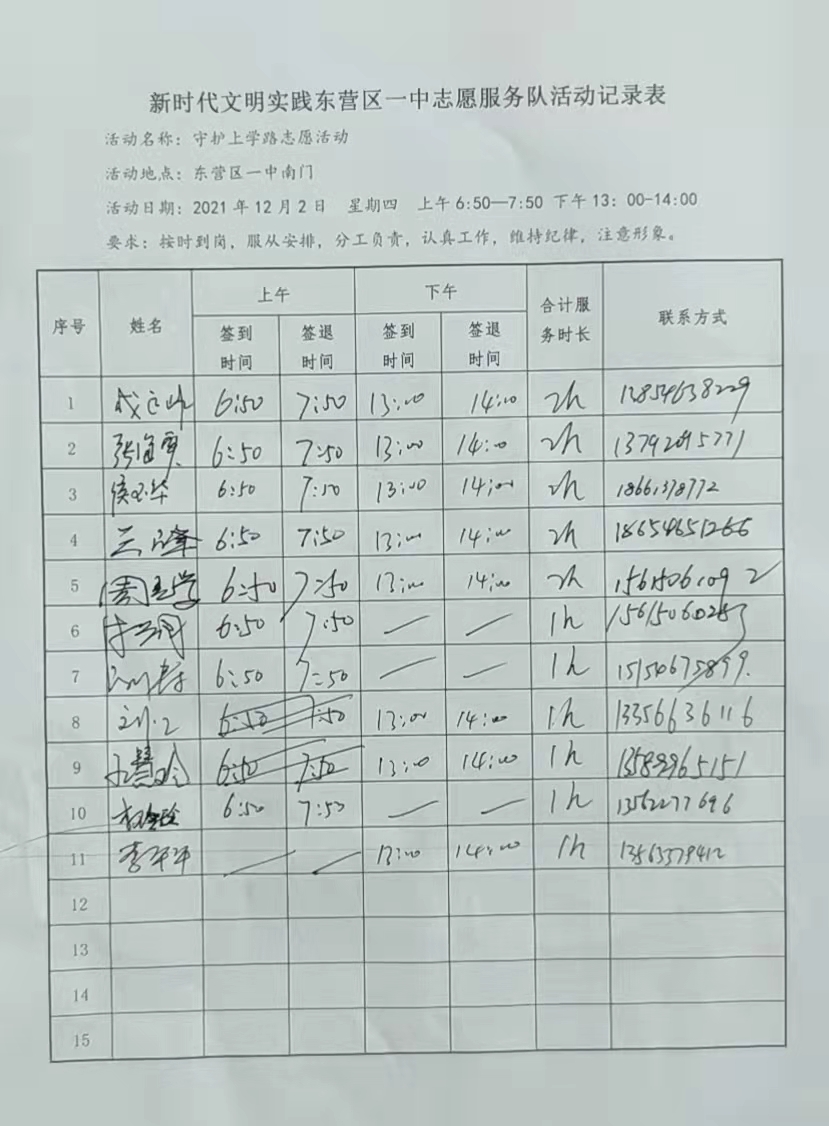 新时代文明实践东营区一中志愿服务队活动记录表
活动名称：守护上学路志愿活动
活动地点：东营区一中南门
活动日期：2021年12月2日 星期四 上午6:50—7:50 下午13：00-14:00
要求：按时到岗，服从安排，分工负责，认真工作，维持纪律，注意形象。
序号 姓名 上午 下午 合计服务时长 联系方式
签到时间 签退时间 签到时间 签退时间
1 6:50 7:50 13:00 14:00 2h 13854638229
2 张海军 6:50 7:50 13:00 14:00 2h 13792095771
3 6:50 7:50 13:00 14:00 2h 18661378772
4 6:50 7:50 13:00 14:00 2h 18654651266
5 6:50 7:50 13:00 14:00 2h
6 6:50 7:50 — — 1h 15615060283
7 6:50 7:50 — — 1h 15154675899.
8 6:50 7:50 13:00 14:00 1h 13356636116
9 6:50 7:50 13:00 14:00 1h 13589965151
10 6:50 7:50 — — 1h 13562277696
11 李平平 — — 13:00 14:00 1h 13563579412
12
13
14
15